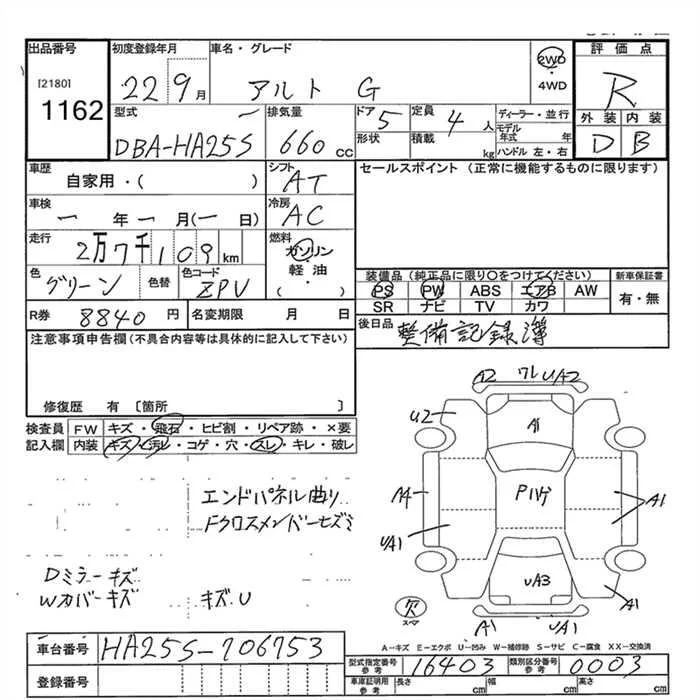 出品番号
[2180]
1162
初度登録年月
22 9月
車名・グレード
アルト G
2WD
・
4WD
評価点
R
外装 内装
D B
型式
DBA-HA25S
排気量
660 cc
ドア 5
形状
定員 4 人
積載 kg
ディーラー・並行
モデル年式 年
ハンドル 左・右
車歴
自家用・( )
シフト AT
セールスポイント (正常に機能するものに限ります)
車検
一 年 一 月(一 日)
冷房 AC
走行
2万7千109 km
燃料
ガソリン
軽・油
( )
色 グリーン
色替
色コード ZPU
装備品(純正品に限り○をつけてください)
PS PW ABS エアB AW
SR ナビ TV カワ
新車保証書
有・無
R券 8840 円
名変期限 月 日
後日品 整備記録簿
注意事項申告欄(不具合内容等は具体的に記入して下さい)
修復歴 有 〔箇所 〕
検査員記入欄
FW キズ・飛石・ヒビ割・リペア跡・×要
内装 キズ・汚レ・コゲ・穴・スレ・キレ・破レ
エンドパネル曲り
Fクロスメンバーキズミ
Dミラーキズ
Wカバーキズ キズU
A2 ワレ UA2
U2
A1
A4
Pハゲ
A1
UA1
UA3
A1
欠
スペア
A1 UA1
A－キズ E－エクボ U－凹み W－補修跡 S－サビ C－腐食 XX－交換済
車台番号 HA25S-706753
登録番号
型式指定番号 参考 16403
類別区分番号 参考 0003
車庫証明用 参考
長さ cm 幅 cm 高さ cm